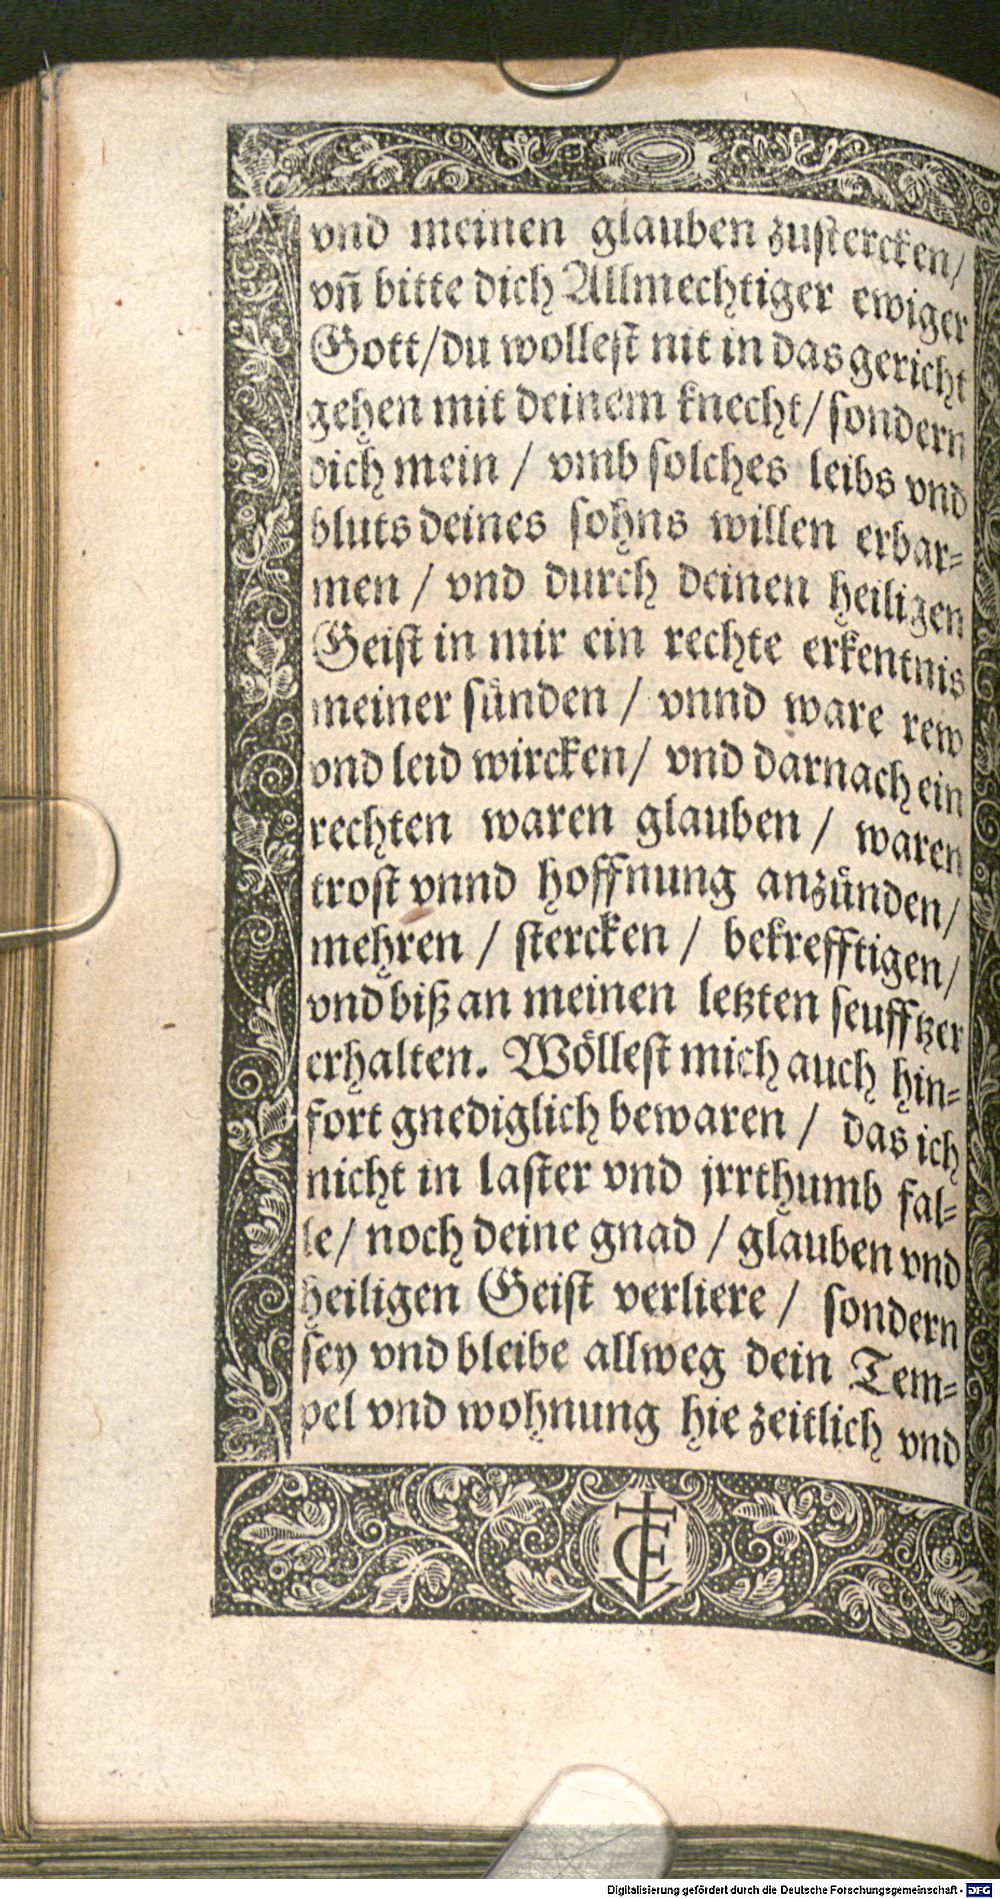 vnd meinen glauben zustercken/
vñ bitte dich Allmechtiger ewiger
Gott/du wollest nit in das gericht
gehen mit deinem knecht/sondern
dich mein / vmb solches leibs vnd
bluts deines sohns willen erbar-
men / vnd durch deinen heiligen
Geist in mir ein rechte erkentnis
meiner sünden / vnnd ware rew
vnd leid wircken/ vnd darnach ein
rechten waren glauben / waren
trost vnnd hoffnung anzünden/
mehren / stercken / bekrefftigen/
vnd biß an meinen letzten seufftzer
erhalten. Wöllest mich auch hin-
fort gnediglich bewaren / das ich
nicht in laster vnd jrrthumb fal-
le/ noch deine gnad / glauben vnd
heiligen Geist verliere / sondern
sey vnd bleibe allweg dein Tem-
pel vnd wohnung hie zeitlich vnd
Digitalisierung gefördert durch die Deutsche Forschungsgemeinschaft - DFG